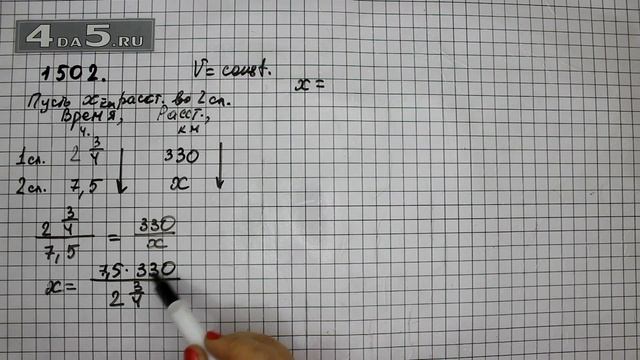 4ДА5.RU
1502.
V = const.
x =
Пусть x км расст. во 2 сл.
Время, Расст.,
ч. км
1 сл. 2 3/4 330
2 сл. 7,5 x
2 3/4 / 7,5 = 330 / x
x = 7,5 · 330 / 2 3/4